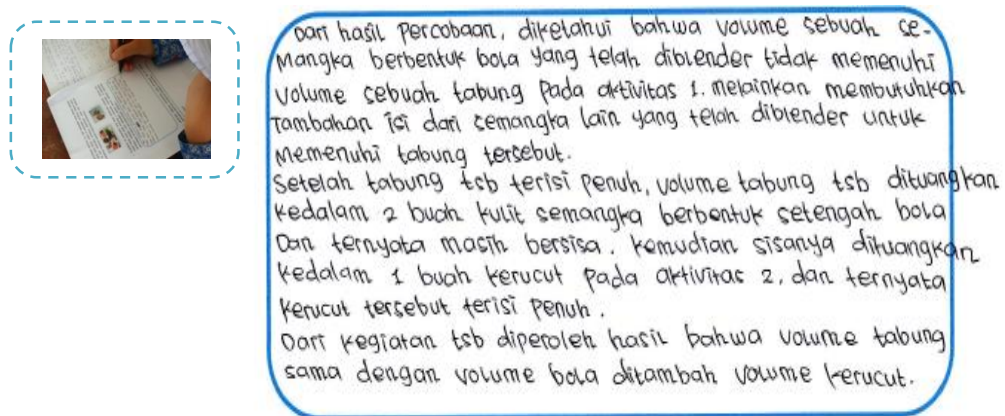 Dari hasil percobaan, diketahui bahwa volume sebuah se-
mangka berbentuk bola yang telah diblender tidak memenuhi
volume sebuah tabung pada aktivitas 1. melainkan membutuhkan
tambahan isi dari semangka lain yang telah diblender untuk
memenuhi tabung tersebut.
Setelah tabung tsb terisi penuh, volume tabung tsb dituangkan
kedalam 2 buah kulit semangka berbentuk setengah bola
Dan ternyata masih bersisa. kemudian sisanya dituangkan
kedalam 1 buah kerucut pada aktivitas 2, dan ternyata
kerucut tersebut terisi penuh.
Dari kegiatan tsb diperoleh hasil bahwa volume tabung
sama dengan volume bola ditambah volume kerucut.